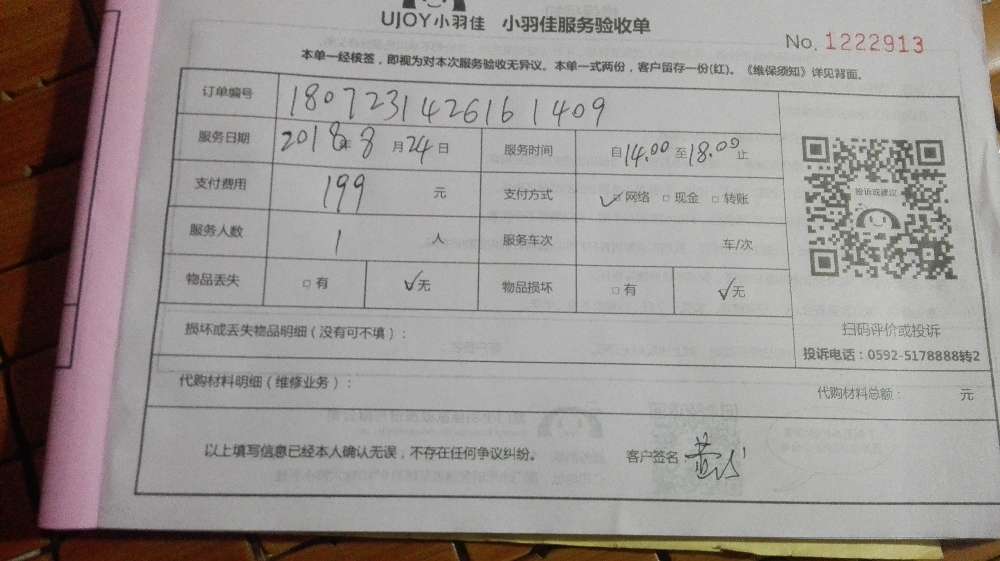 UJOY小羽佳 小羽佳服务验收单
No. 1222913
本单一经核签，即视为对本次服务验收无异议。本单一式两份，客户留存一份(红)。《维保须知》详见背面。
订单编号 180723142616 1409
服务日期 2018年8月24日 服务时间 自14.00至18.00止
支付费用 199 元 支付方式 ✓□网络 □现金 □转账
服务人数 1 人 服务车次 车/次
物品丢失 □有 ✓无 物品损坏 □有 ✓无
损坏或丢失物品明细（没有可不填）：
投诉或建议
扫码评价或投诉
投诉电话：0592-5178888转2
代购材料明细（维修业务）： 代购材料总额： 元
以上填写信息已经本人确认无误，不存在任何争议纠纷。 客户签名